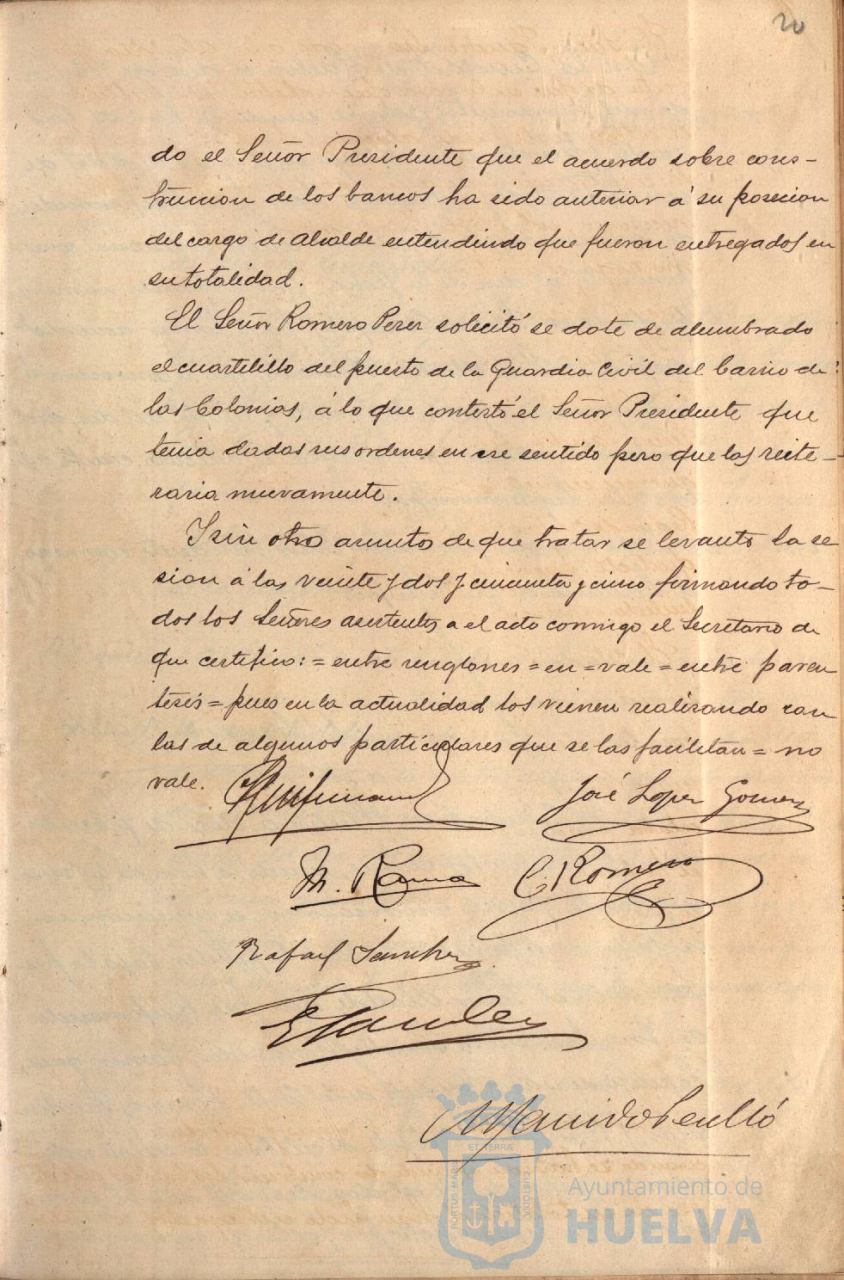 20
do el Señor Presidente que el acuerdo sobre cons-
truccion de los bancos ha sido anterior á su posecion
del cargo de Alcalde entendindo que fueron entregados en
su totalidad.
El Señor Romero Perez solicitó se dote de alumbrado
el cuartelillo del puerto de la Guardia Civil del barrio de
las Colonias, á lo que contestó el Señor Presidente que
tenia dadas sus ordenes en ese sentido pero que las reite-
raria nuevamente.
Y sin otro asuntos de que tratar se levanto la se
sion á las veinte y dos y cincuenta y cinco firmando to-
dos los Señores asistentes a el acto conmigo el Secretario de
que certifico: = entre renglones = en = vale = entre paren
tesis = pues en la actualidad los vienen realizando con
las de algunos particulares que se las facilitan = no
vale.
José Lopez Gomez
C. Romero
Rafael Sanchez
ET TERRA
PORTUS MARIS
CUSTODIA
Ayuntamiento de
HUELVA